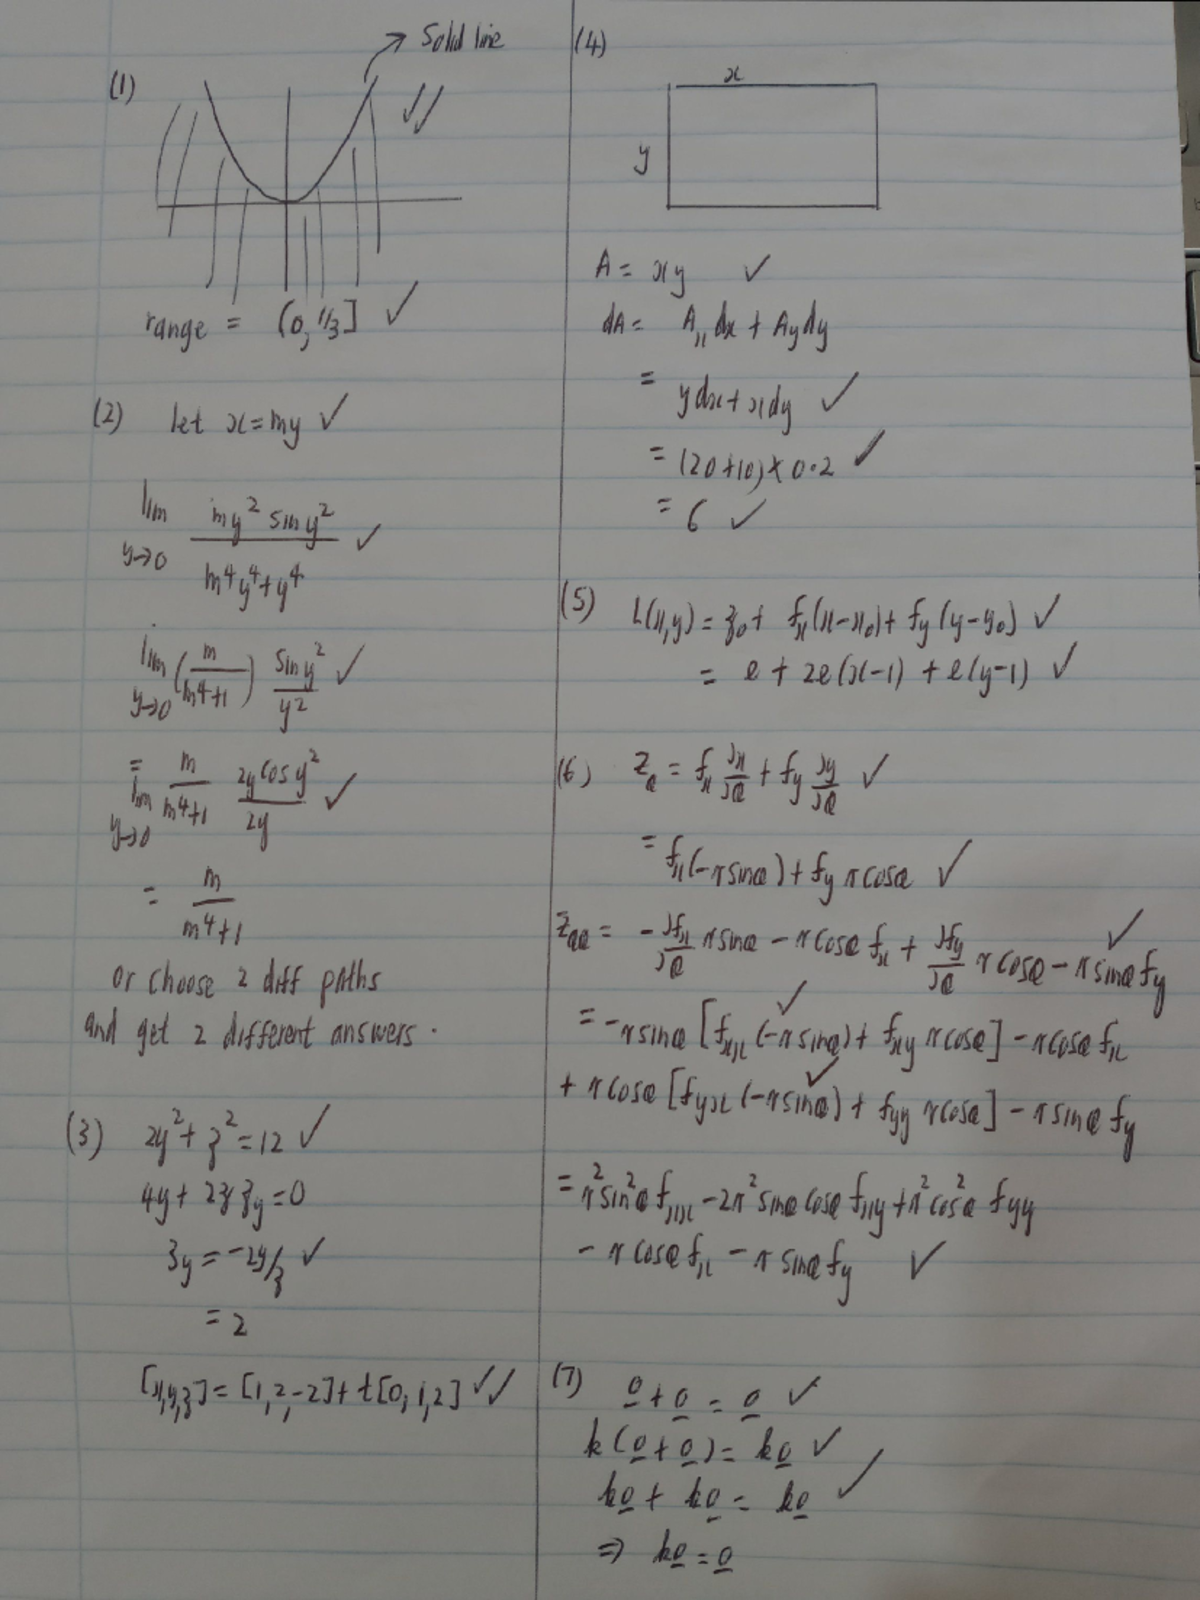 (1)
Solid line
range = (0, 1/3]
(2) let x = my ✓
lim y→0 my² sin y² / m⁴y⁴+y⁴ ✓
lim y→0 (m / m⁴+1) sin y² / y² ✓
= lim y→0 m / m⁴+1 2y cos y² / 2y ✓
= m / m⁴+1
or choose 2 diff paths
and get 2 different answers.
(3) 2y² + z² = 12 ✓
4y + 2z zy = 0
zy = -2y/z ✓
= 2
[x,y,z] = [1,2,-2] + t[0,1,2] ✓✓
(4)
x
y
A = xy ✓
dA = Ax dx + Ay dy
= y dx + x dy ✓
= (20+10) × 0.2 ✓
= 6 ✓
(5) L(x,y) = z₀ + fx(x-x₀) + fy(y-y₀) ✓
= e + 2e(x-1) + e(y-1) ✓
(6) zθ = fx ∂x/∂θ + fy ∂y/∂θ ✓
= fx(-r sinθ) + fy r cosθ ✓
zθθ = - ∂fx/∂θ r sinθ - r cosθ fx + ∂fy/∂θ r cosθ - r sinθ fy ✓
= -r sinθ [fxx (-r sinθ) + fxy r cosθ] - r cosθ fx ✓
+ r cosθ [fyx (-r sinθ) + fyy r cosθ] - r sinθ fy ✓
= r² sin²θ fxx - 2r² sinθ cosθ fxy + r² cos²θ fyy
- r cosθ fx - r sinθ fy ✓
(7) 0 + 0 = 0 ✓
k(0 + 0) = k0 ✓
k0 + k0 = k0 ✓
⇒ k0 = 0